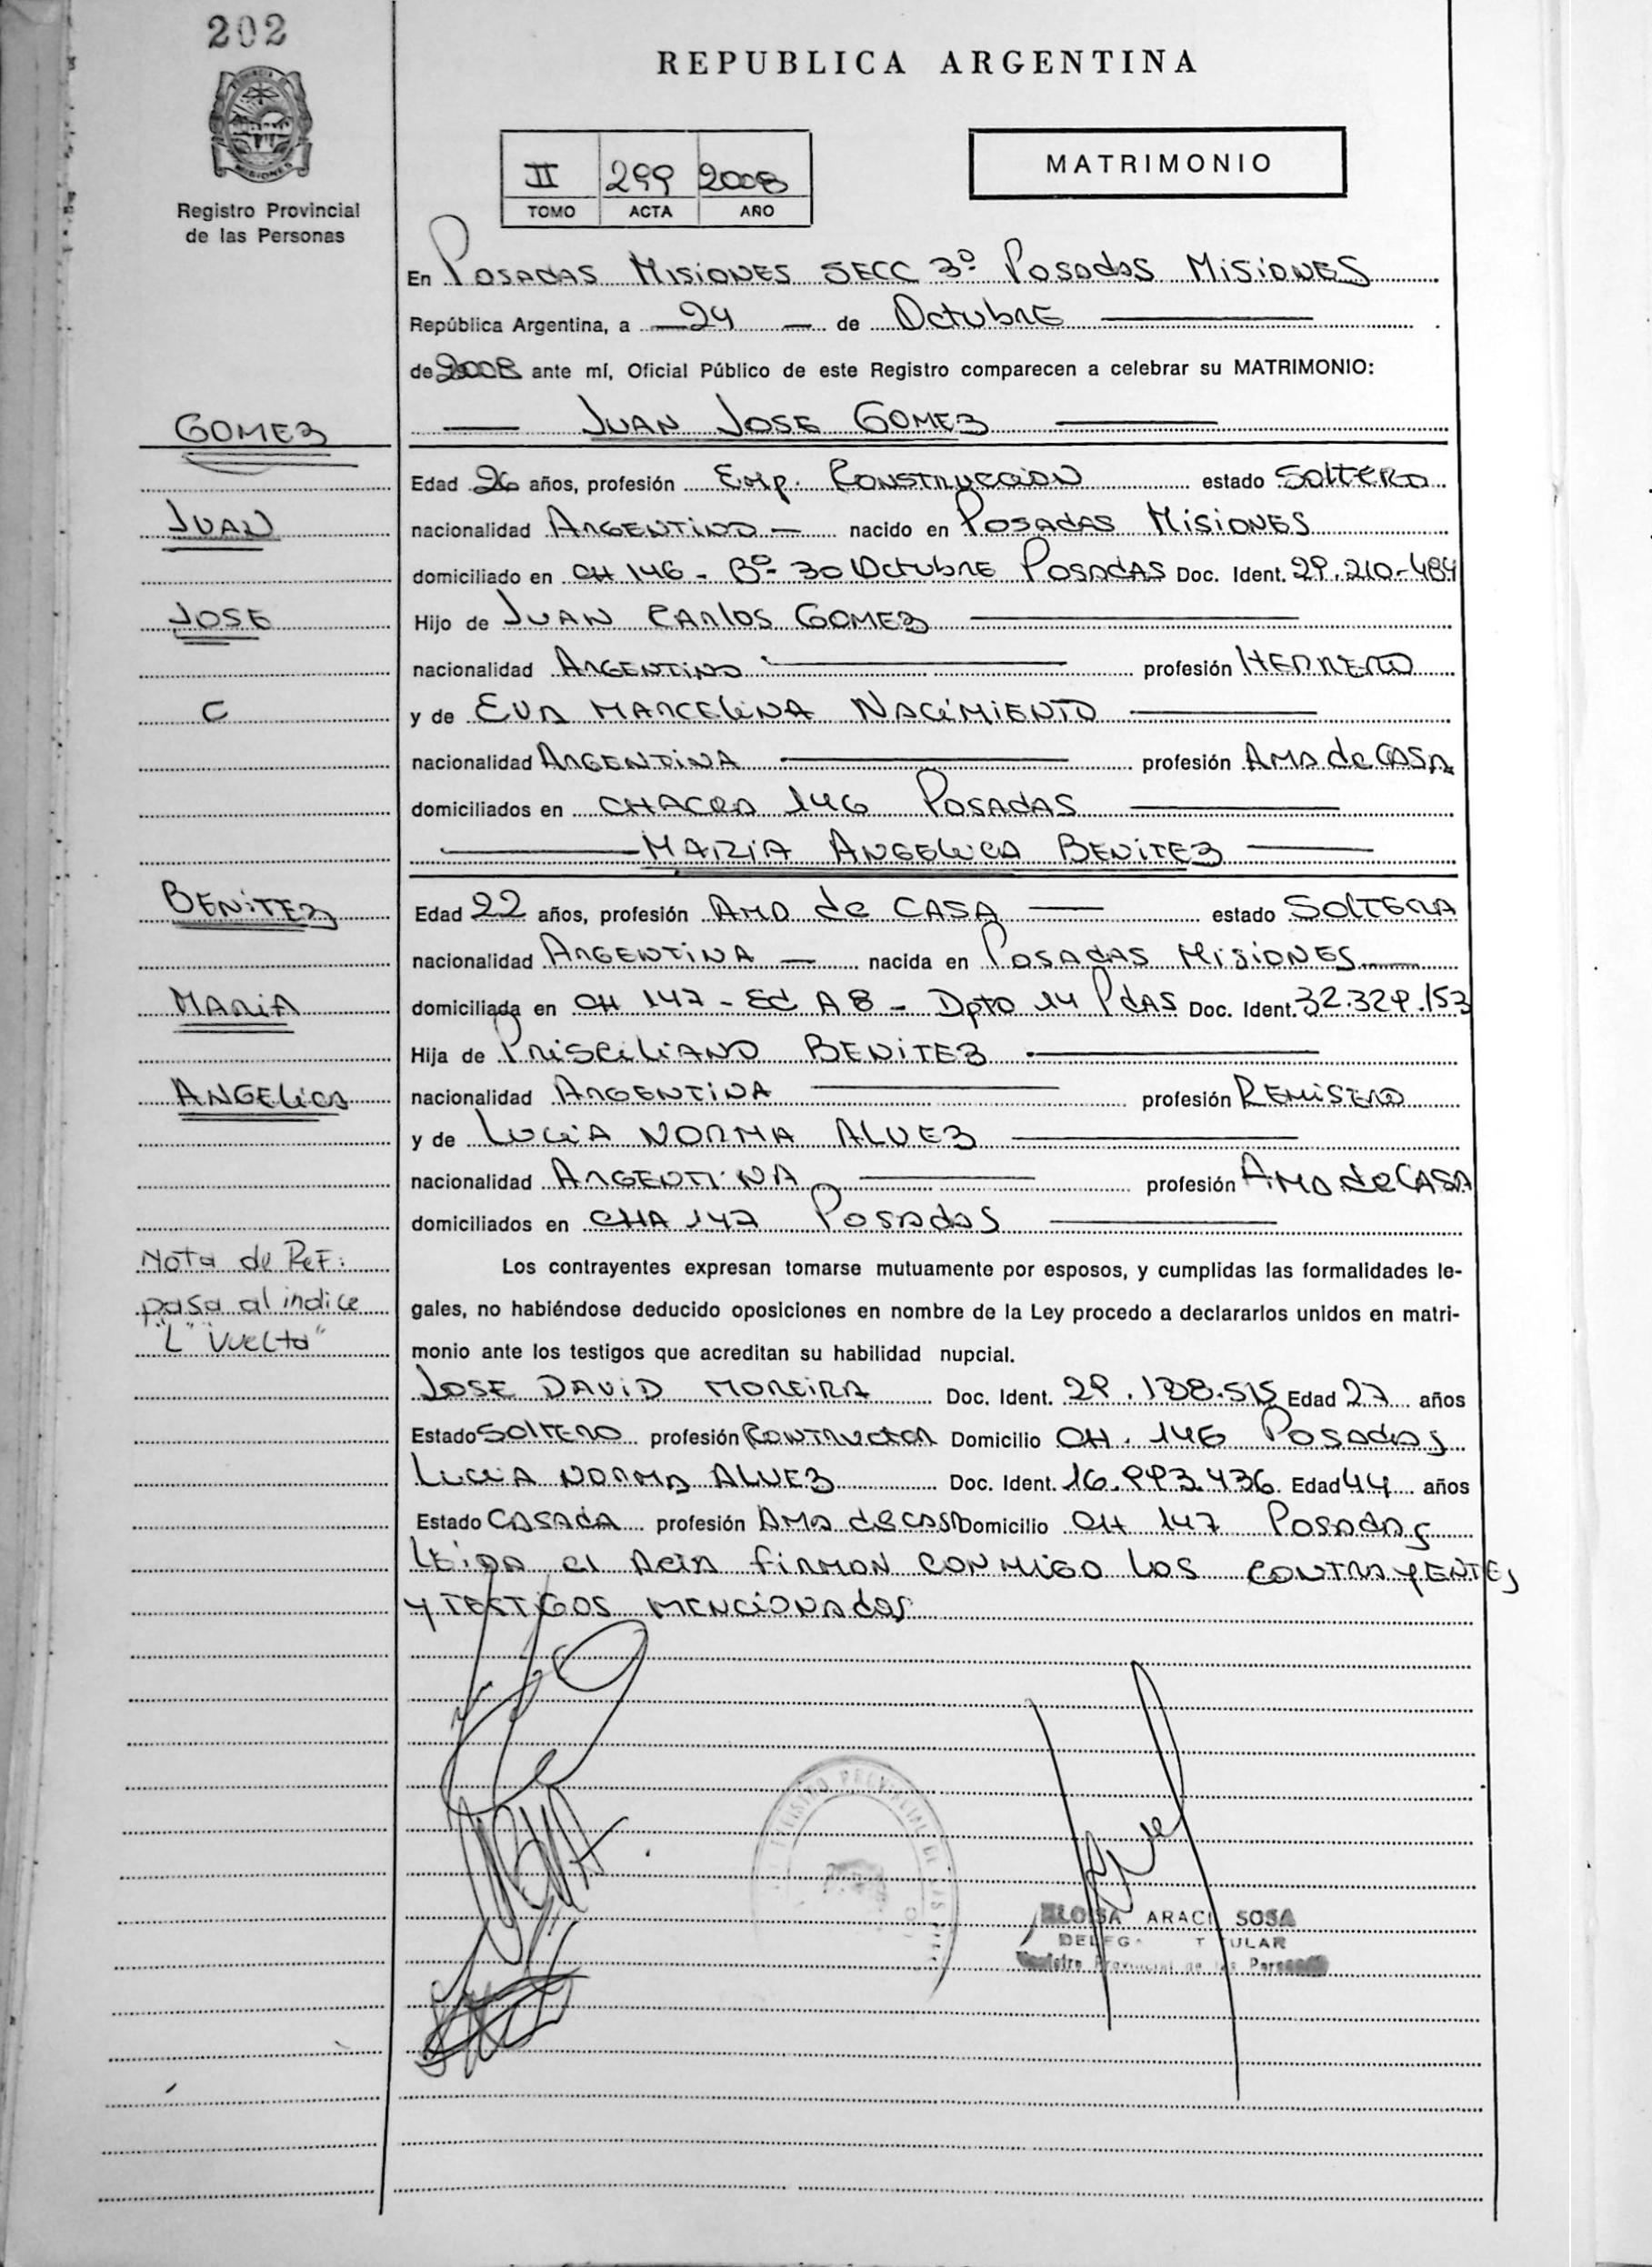 202
REPUBLICA ARGENTINA
MISIONES
Registro Provincial
de las Personas
II 299 2008
TOMO ACTA AÑO
MATRIMONIO
En POSADAS MISIONES SECC 3º POSADAS MISIONES
República Argentina, a 24 de OctubRE
de 2008 ante mí, Oficial Público de este Registro comparecen a celebrar su MATRIMONIO:
GOMEZ
JUAN JOSE GOMEZ
Edad 26 años, profesión Emp. CONSTRUCCION estado SOLTERO
JUAN
nacionalidad ARGENTINO nacido en POSADAS MISIONES
domiciliado en CH 146 - Bº 30 OctubRE POSADAS Doc. Ident. 29.210-484
JOSE
Hijo de JUAN CARLOS GOMEZ
nacionalidad ARGENTINO profesión HERRERO
C
y de EVA MARCELINA NACIMIENTO
nacionalidad ARGENTINA profesión AMA de CASA
domiciliados en CHACRA 146 POSADAS
MARIA ANGELICA BENITEZ
BENITEZ
Edad 22 años, profesión AMA de CASA estado SOLTERA
nacionalidad ARGENTINA nacida en POSADAS MISIONES
MARIA
domiciliada en CH 147 - Ed A 8 - Dpto 14 PdAS Doc. Ident. 32.329.153
Hija de PRISCILIANO BENITEZ
ANGELICA
nacionalidad ARGENTINA profesión REMISERO
y de LUCIA NORMA ALVEZ
nacionalidad ARGENTINA profesión AMA de CASA
domiciliados en CHA 147 POSADAS
Nota de Ref:
pasa al indice
"L" Vuelta"
Los contrayentes expresan tomarse mutuamente por esposos, y cumplidas las formalidades le-
gales, no habiéndose deducido oposiciones en nombre de la Ley procedo a declararlos unidos en matri-
monio ante los testigos que acreditan su habilidad nupcial.
JOSE DAVID MOREIRA Doc. Ident. 29.138.515 Edad 27 años
Estado SOLTERO profesión CONTRUCTOR Domicilio CH. 146 POSADAS
LUCIA NORMA ALVEZ Doc. Ident. 16.993.436 Edad 44 años
Estado CASADA profesión AMA de CASA Domicilio CH 147 POSADAS
LEIDA el ACTA FIRMAN CONMIGO LOS CONTRAYENTES
Y TESTIGOS MENCIONADOS
REGISTRO PROVINCIAL DE
ELOISA ARACI SOSA
TITULAR
Registro Provincial de las Personas